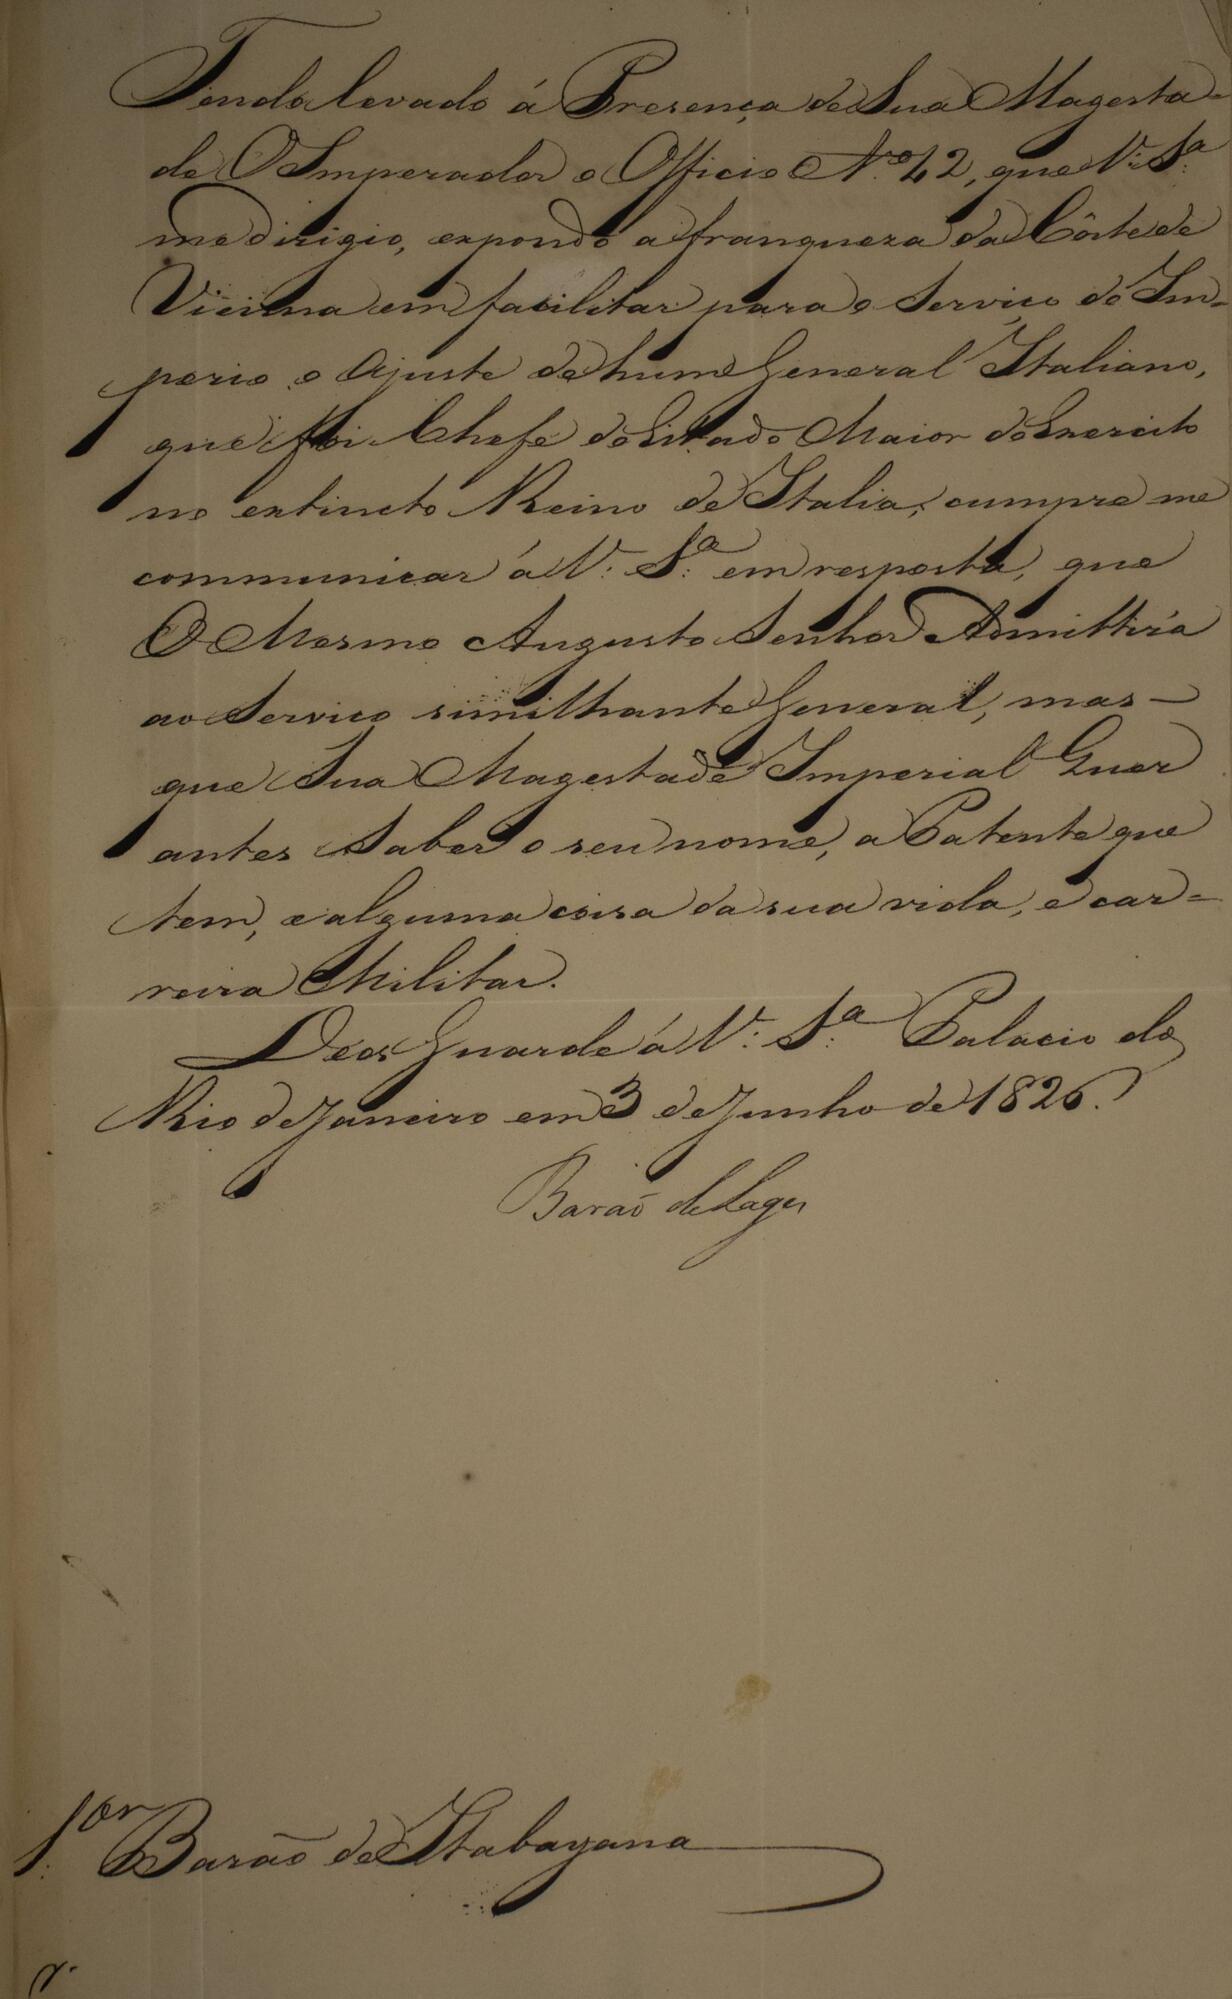 Tendo levado á Presença de Sua Magesta-
de O Imperador o Officio Nº 42, que V: S:ª
me dirigio, expondo a franqueza da Côrte de
Vienna em facilitar para o Serviço do Im-
perio o ajuste de hum General Italiano,
que foi Chefe do Estado Maior do Exercito
no extincto Reino de Italia, cumpre me
communicar á V: S:ª em resposta, que
O Mesmo Augusto Senhor Admittirá
ao Serviço similhante General, mas
que Sua Magestade Imperial Quer
antes Saber o seu nome, a Patente que
tem, e alguma coisa da sua vida, e car-
reira Militar.
Deos Guarde á V: S:ª Palacio do
Rio de Janeiro em 3 de Junho de 1826.
Barão de Lages
S:or Barão de Itabayana